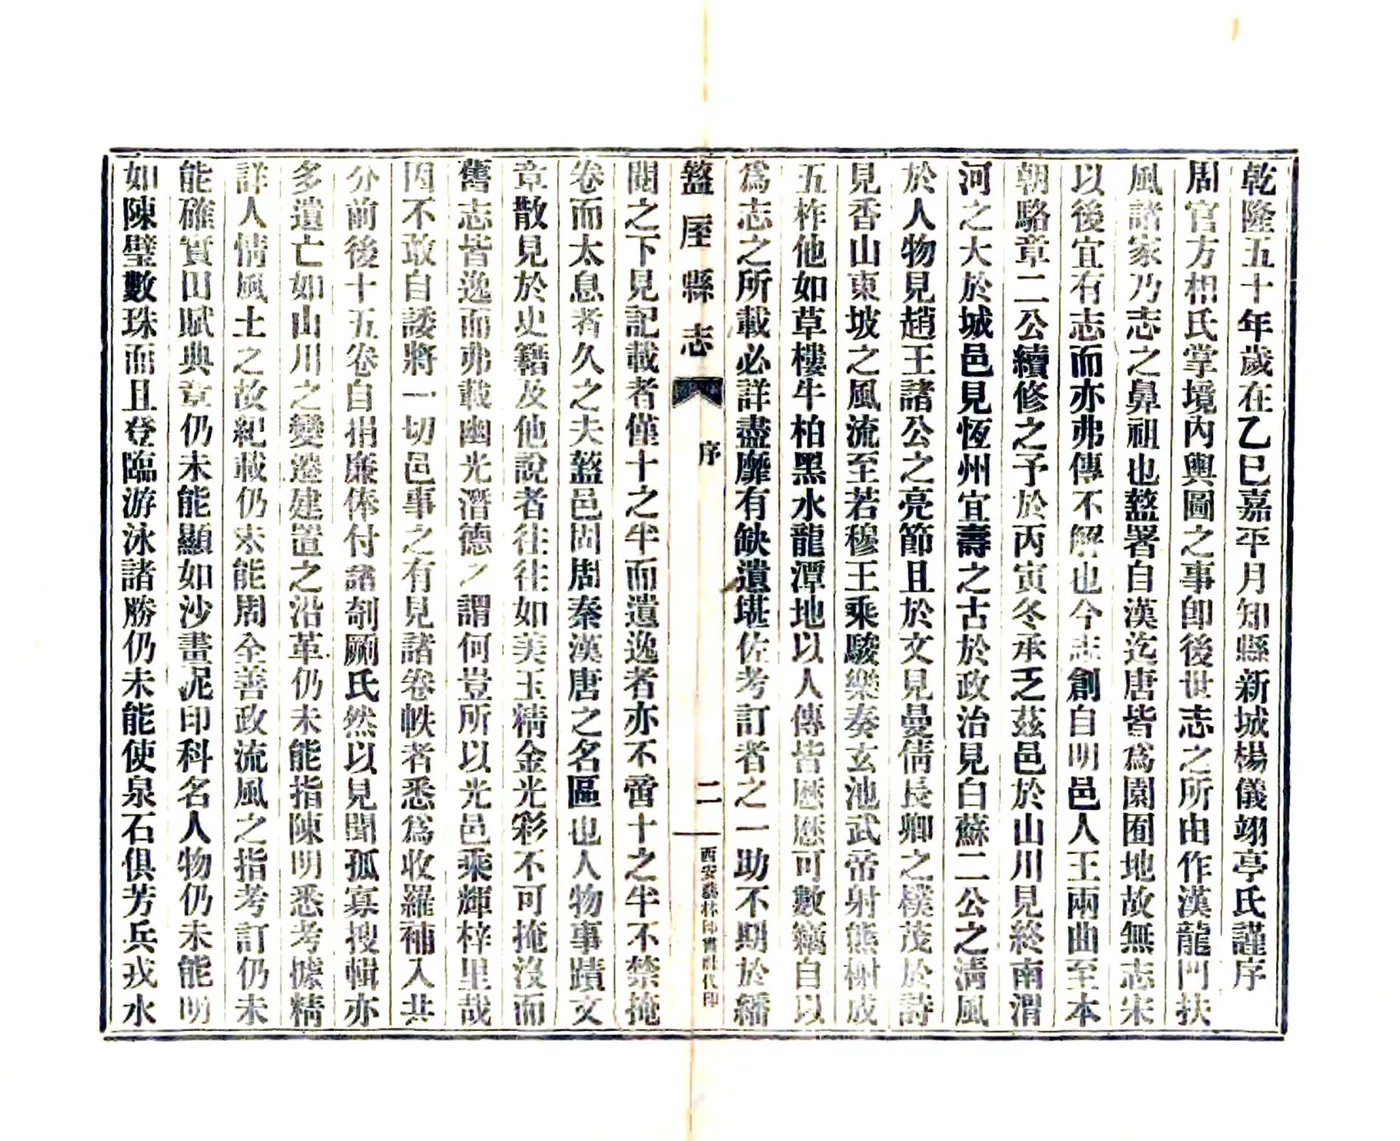 乾隆五十年歲在乙巳嘉平月知縣新城楊儀翊亭氏謹序
周官方相氏掌境內輿圖之事卽後世志之所由作漢龍門扶
風諸家乃志之鼻祖也盩署自漢迄唐皆爲園囿地故無志宋
以後宜有志而亦弗傳不解也今志創自明邑人王兩曲至本
朝駱章二公續修之予於丙寅冬承乏茲邑於山川見終南渭
河之大於城邑見恆州宜壽之古於政治見白蘇二公之淸風
於人物見趙王諸公之亮節且於文見曼倩長卿之樸茂於詩
見香山東坡之風流至若穆王乘駿樂奏玄池武帝射熊榭成
五柞他如草樓牛柏黑水龍潭地以人傳皆歷歷可數竊自以
爲志之所載必詳盡靡有缺遺堪佐考訂者之一助不期於繙
盩厔縣志
序
二
西安藝林印書社代印
閱之下見記載者僅十之半而遺逸者亦不啻十之半不禁掩
卷而太息者久之夫盩邑固周秦漢唐之名區也人物事蹟文
章散見於史籍及他說者往往如美玉精金光彩不可掩沒而
舊志皆逸而弗載幽光潛德之謂何豈所以光邑乘輝梓里哉
因不敢自諉將一切邑事之有見諸卷帙者悉爲收羅補入共
分前後十五卷自捐廉俸付諸剞劂氏然以見聞孤寡搜輯亦
多遺亡如山川之變遷建置之沿革仍未能指陳明悉考據精
詳人情風土之故紀載仍未能周全善政流風之指考訂仍未
能確實田賦典章仍未能顯如沙畫泥印科名人物仍未能明
如陳璧數珠而且登臨游泳諸勝仍未能使泉石俱芳兵戎水